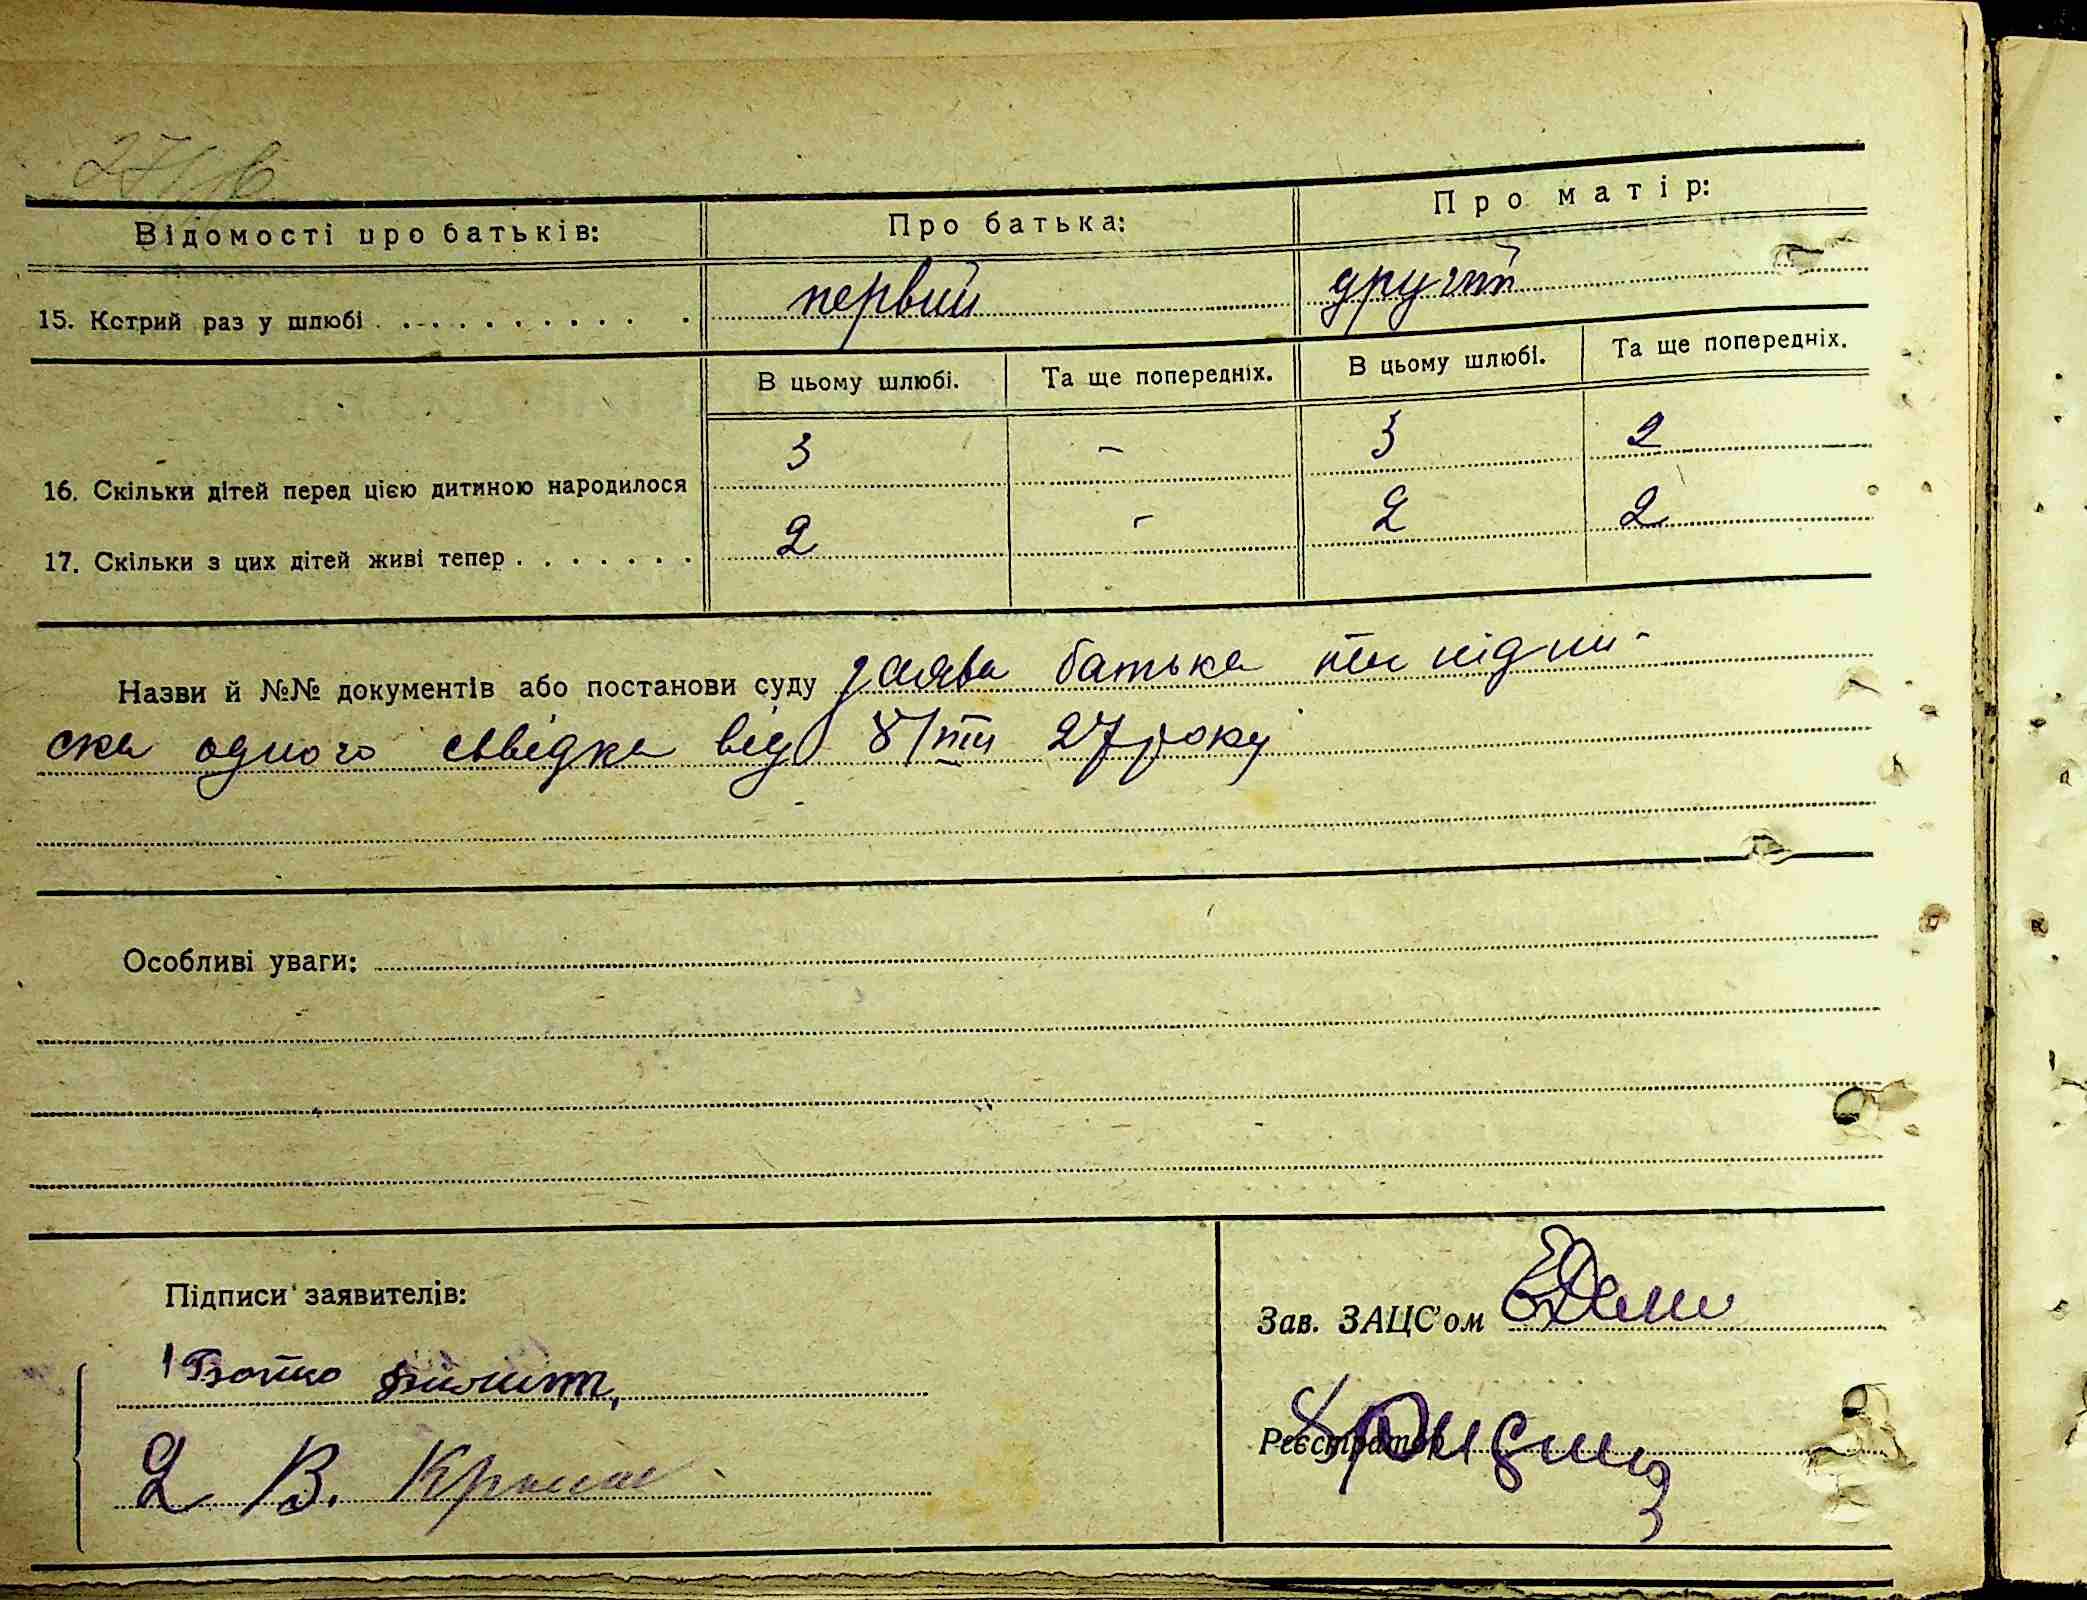 Відомості про батьків:
Про батька:
Про матір:
15. Котрий раз у шлюбі
первий
другий
В цьому шлюбі.
Та ще попередніх.
В цьому шлюбі.
Та ще попередніх.
16. Скільки дітей перед цією дитиною народилося
3
-
3
2
17. Скільки з цих дітей живі тепер
2
-
2
2
Назви й №№ документів або постанови суду заява батька та підпи-
ска одного свідка від 8/III 27 року
Особливі уваги:
Підписи заявителів:
Зав. ЗАЦС'ом
1 Бойко
Реєстратор
2 В.